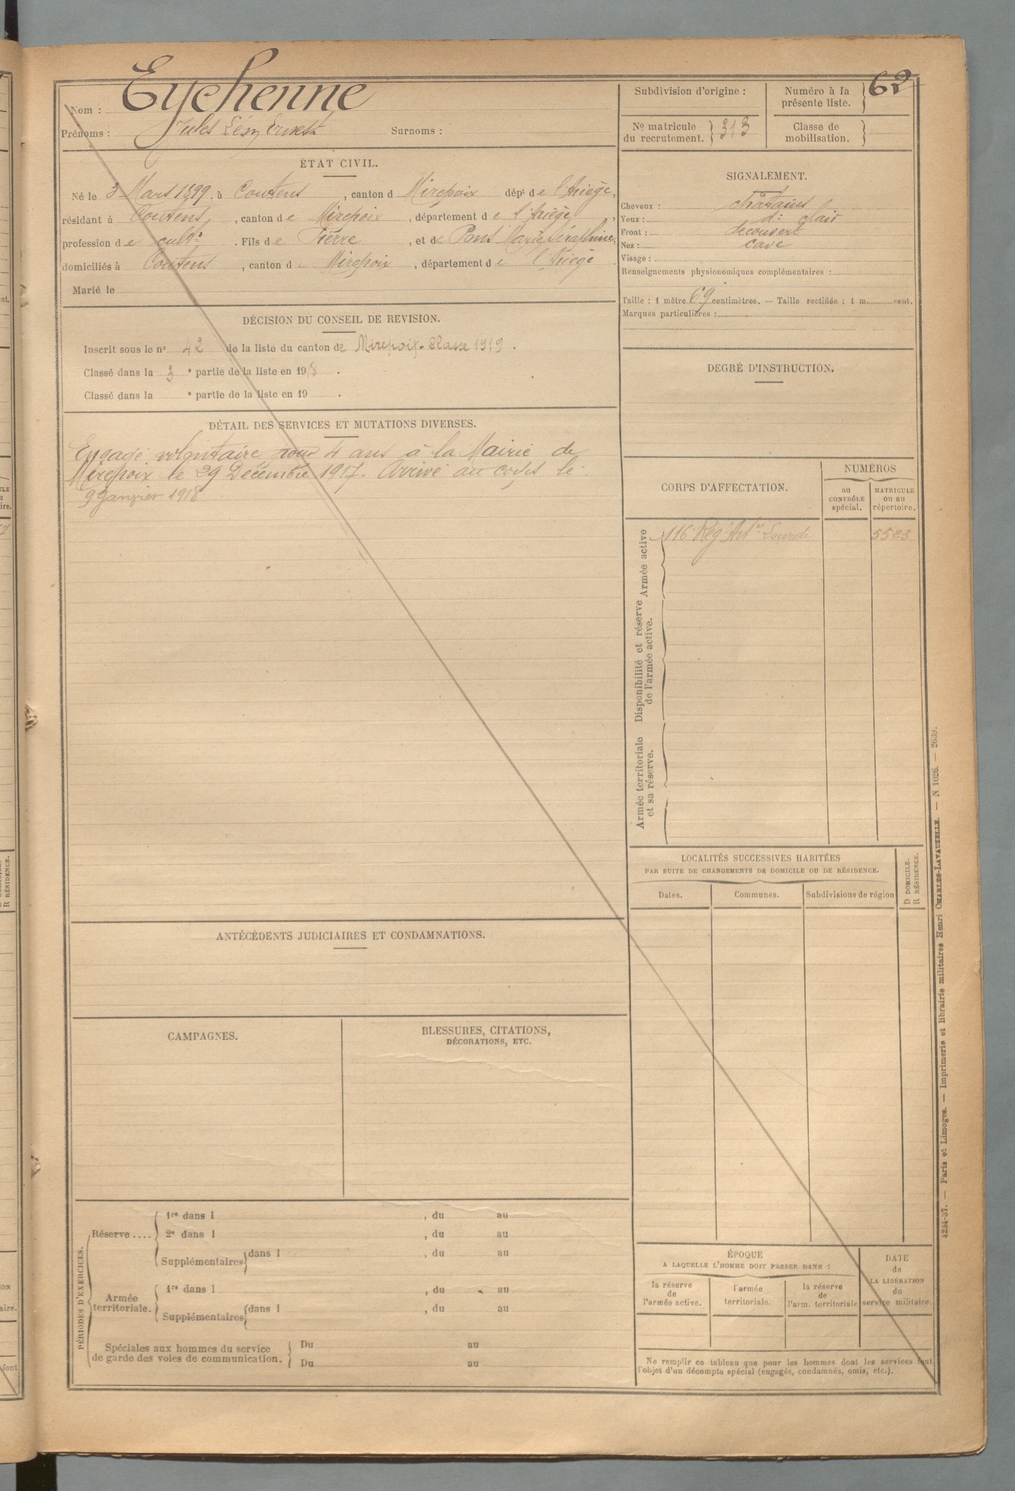 Nom : Eychenne
Prénoms : Jules Léon Ernest Surnoms :
ÉTAT CIVIL.
Né le 3 Mars 1899, à Coutens, canton d Mirepoix dépt de l'Ariège,
résidant à Coutens, canton de Mirepoix, département de l'Ariège,
profession de cultr. Fils de Pierre, et de Pons Marie Séraphine,
domiciliés à Coutens, canton d Mirepoix, département de l'Ariège
Marié le
DÉCISION DU CONSEIL DE REVISION.
Inscrit sous le no 42 de la liste du canton de Mirepoix. Classe 1919.
Classé dans la 3 e partie de la liste en 1918.
Classé dans la e partie de la liste en 19 .
DÉTAIL DES SERVICES ET MUTATIONS DIVERSES.
Engagé volontaire pour 4 ans à la Mairie de
Mirepoix le 29 Décembre 1917. Arrivé au corps le
9 Janvier 1918
ANTÉCÉDENTS JUDICIAIRES ET CONDAMNATIONS.
CAMPAGNES.
BLESSURES, CITATIONS,
DÉCORATIONS, ETC.
PÉRIODES D'EXERCICES.
Réserve ....
1re dans l , du au
2e dans l , du au
Supplémentaires dans l , du au
Armée
territoriale.
1re dans l , du au
Supplémentaires dans l , du au
Spéciales aux hommes du service
de garde des voies de communication.
Du au
Du au
Subdivision d'origine :
Numéro à la
présente liste. 62
No matricule
du recrutement. 313
Classe de
mobilisation.
SIGNALEMENT.
Cheveux : châtains
Yeux : do clair
Front : découvert
Nez : cave
Visage :
Renseignements physionomiques complémentaires :
Taille : 1 mètre 69 centimètres. — Taille rectifiée : 1 m. cent.
Marques particulières :
DEGRÉ D'INSTRUCTION.
CORPS D'AFFECTATION.
NUMÉROS
au
CONTRÔLE
spécial.
MATRICULE
ou au
répertoire.
Armée active
116 Rég Artie Lourde 5503
Disponibilité et réserve
de l'armée active.
Armée territoriale
et sa réserve.
LOCALITÉS SUCCESSIVES HABITÉES
PAR SUITE DE CHANGEMENTS DE DOMICILE OU DE RÉSIDENCE.
Dates. Communes. Subdivisions de région
D DOMICILE.
R RÉSIDENCE.
ÉPOQUE
A LAQUELLE L'HOMME DOIT PASSER DANS :
la réserve
de
l'armée active.
l'armée
territoriale.
la réserve
de
l'arm. territoriale
DATE
de
LA LIBÉRATION
du
service militaire.
Ne remplir ce tableau que pour les hommes dont les services font
l'objet d'un décompte spécial (engagés, condamnés, omis, etc.).
4234-37. — Paris et Limoges. — Imprimerie et librairie militaires Henri CHARLES-LAVAUZELLE. — N 1026. —